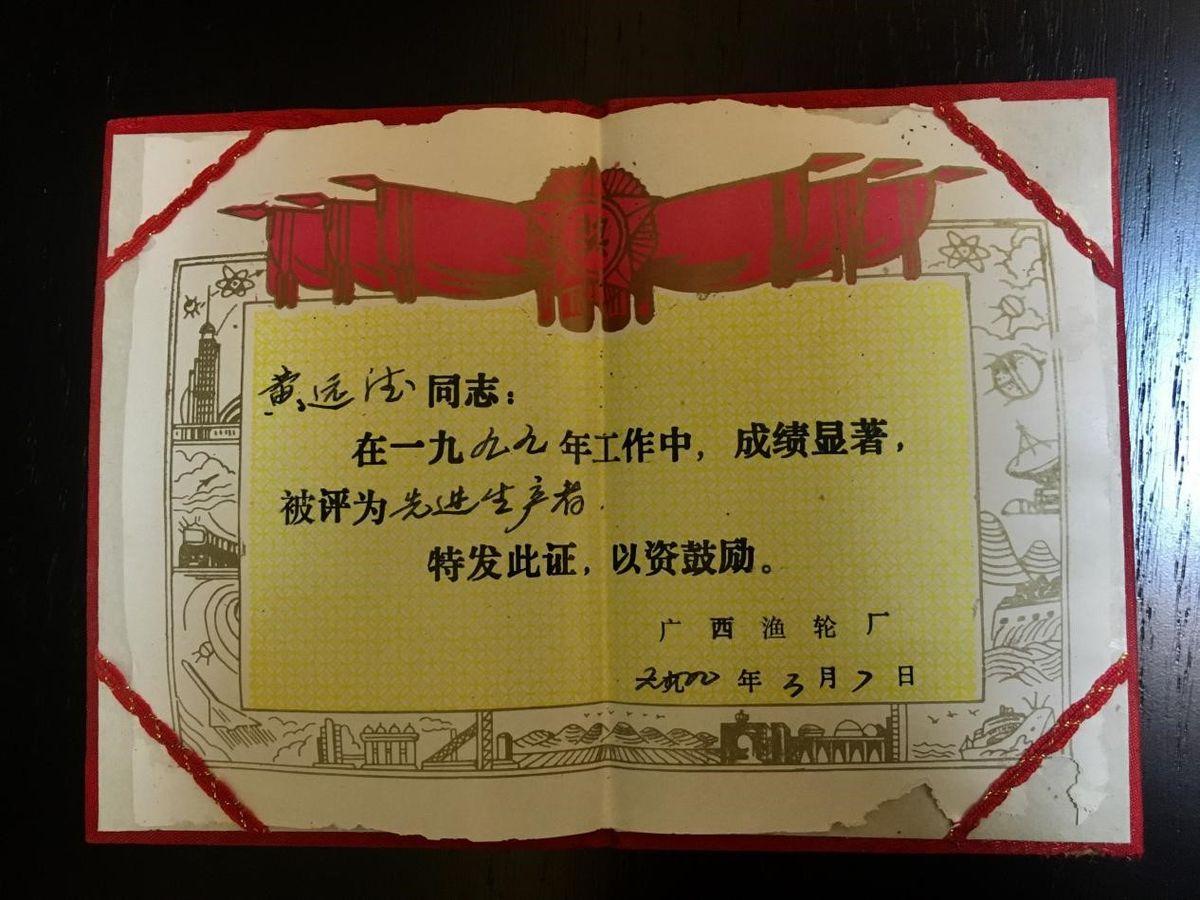 奖
黄远法同志：
在一九九九年工作中，成绩显著，
被评为先进生产者
特发此证，以资鼓励。
广西渔轮厂
年3月7日